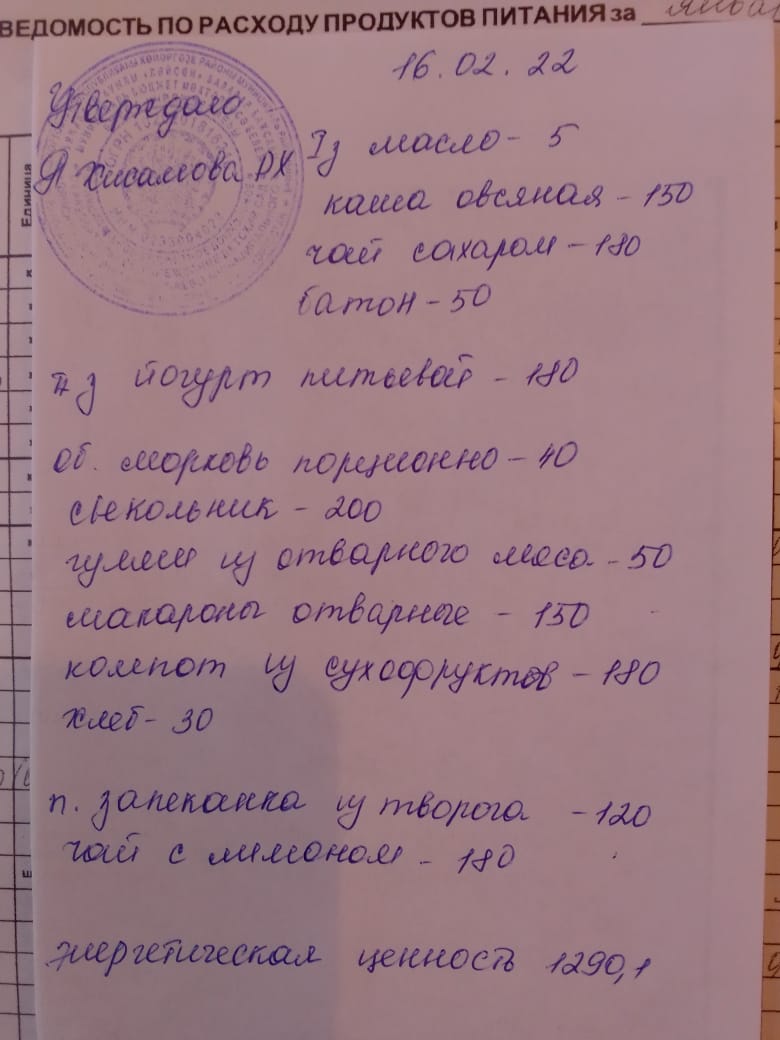 ВЕДОМОСТЬ ПО РАСХОДУ ПРОДУКТОВ ПИТАНИЯ за январ
16.02.22
Утверждаю
Хисамова РХ
Iз масло - 5
каша овсяная - 150
чай сахаром - 180
батон - 50
IIз йогурт питьевой - 180
об. морковь порционно - 40
свекольник - 200
гуляш из отварного мяса - 50
макароны отварные - 150
компот из сухофруктов - 180
хлеб - 30
п. запеканка из творога - 120
чай с лимоном - 180
энергетическая ценность 1290,1
Единица